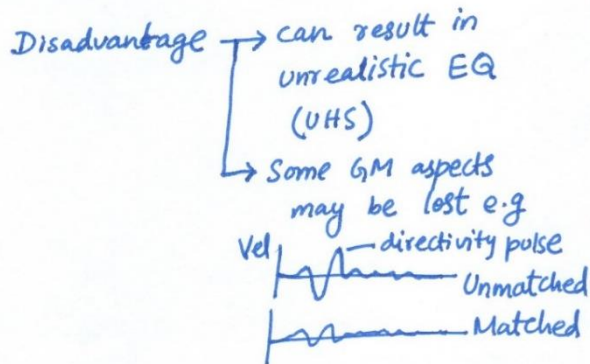 Disadvantage → can result in
unrealistic EQ
(UHS)
→ Some GM aspects
may be lost e.g
Vel directivity pulse
Unmatched
Matched